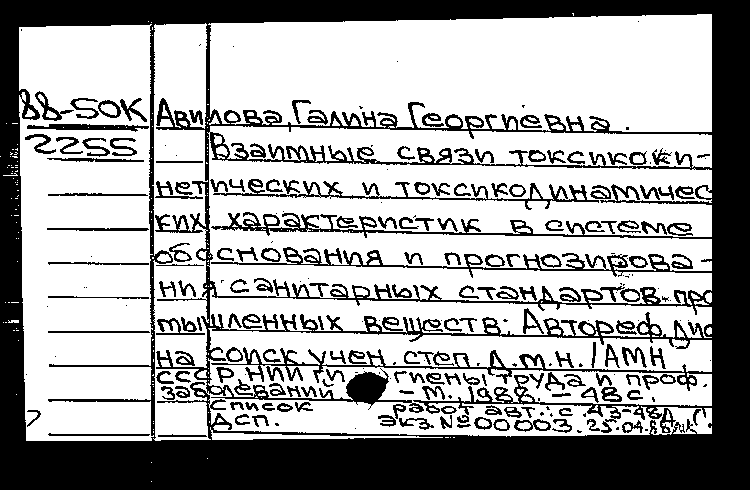 88-50К Авилова, Галина Георгиевна.
2255 Взаимные связи токсикоки-
нетических и токсикодинамичес
ких характеристик в системе
обоснования и прогнозирова-
ния санитарных стандартов про
мышленных веществ: Автореф. дис
на соиск. учен. степ. д.м.н. / АМН
СССР. НИИ ги гиены труда и проф.
заболеваний. – М., 1988. – 48 с.
Список работ авт.: с. 43-48
ДСП. Экз. № 00003. 25.04.88